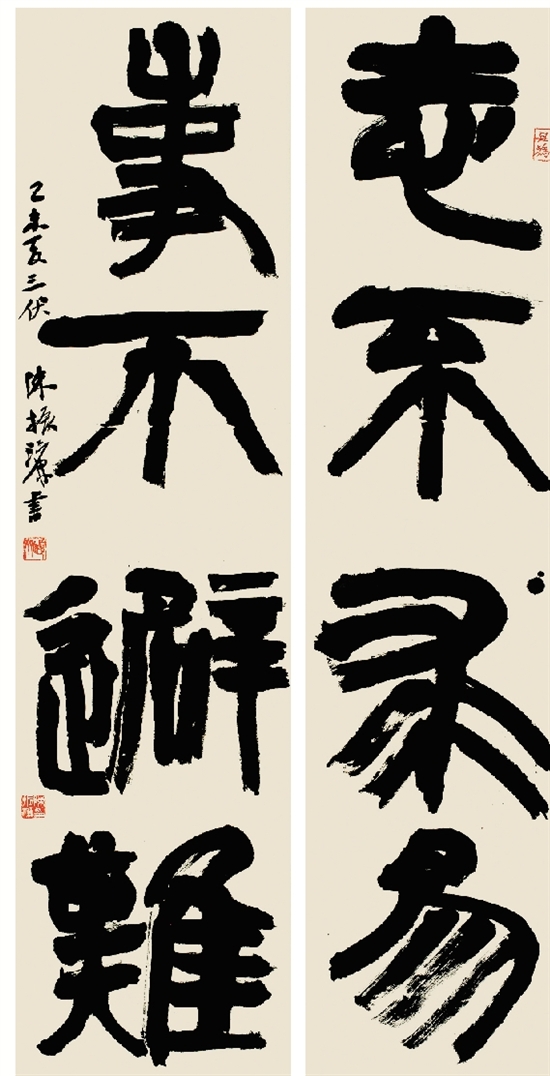 志不求易
事不避難
乙未夏三伏 陳振濂書